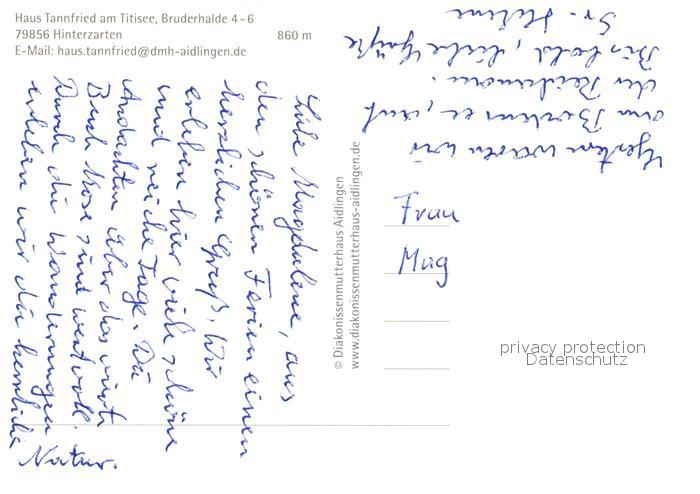 Haus Tannfried am Titisee, Bruderhalde 4-6
79856 Hinterzarten 860 m
E-Mail: haus.tannfried@dmh-aidlingen.de
Liebe Magdalene, aus
den schönen Ferien einen
herzlichen Gruß. Wir
erleben hier viele schöne
und reiche Tage. Die
Andachten über das vierte
Buch Mose sind wertvoll.
Durch die Wanderungen
erleben wir die herrliche
Natur.
Gestern waren wir
am Bodensee, auf
der Reichenau.
Bis bald, liebe Grüße
Sr. Helene
© Diakonissenmutterhaus Aidlingen
www.diakonissenmutterhaus-aidlingen.de
Frau
Mag
privacy protection
Datenschutz